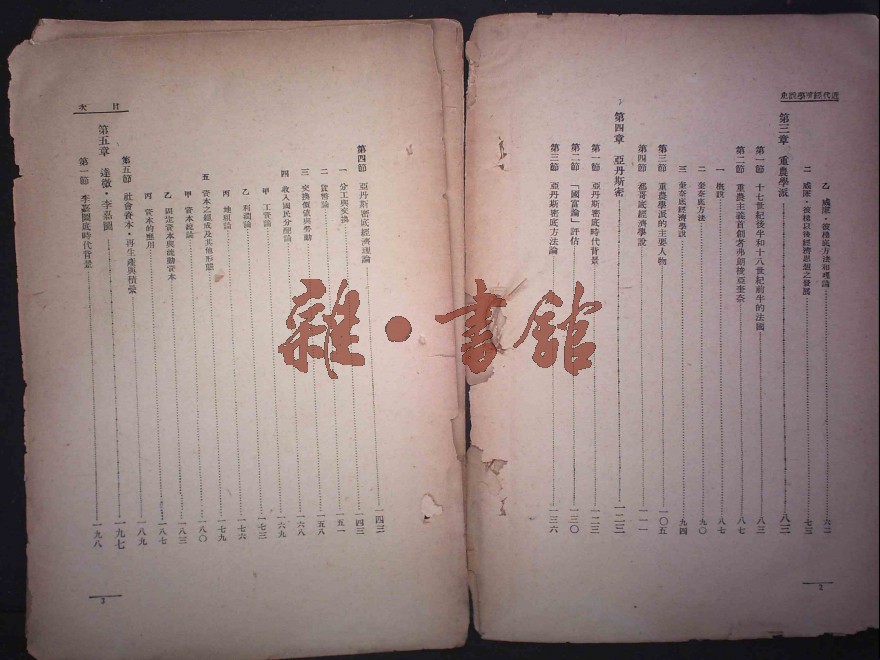 近代經濟學說史
乙 威廉·波棣底方法和理論 六二
二 威廉·波棣以後經濟思想之發展 七三
第三章 重農學派 八三
第一節 十七世紀後半和十八世紀前半的法國 八三
第二節 重農主義首創者弗朗後亞奎奈 八七
一 概說 八七
二 奎奈底方法 九〇
三 奎奈底經濟學說 九四
第三節 重農學派的主要人物 一〇五
第四節 都哥底經濟學說 一一一
第四章 亞丹斯密 一二三
第一節 亞丹斯密底時代背景 一二三
第二節 「國富論」評估 一三〇
第三節 亞丹斯密底方法論 一三六
2
目次
第四節 亞丹斯密底經濟理論 一四三
一 分工與交換 一四三
二 貨幣論 一五一
三 交換價值與勞動 一五八
四 收入國民分配論 一六八
甲 工資論 一六九
乙 利潤論 一七三
丙 地租論 一七六
五 資本之組成及其他形態 一七九
甲 資本總論 一八〇
乙 固定資本與流動資本 一八三
丙 資本的應用 一八七
第五節 社會資本·再生產與積蓄 一八九
第五章 達微·李嘉圖 一九七
第一節 李嘉圖底時代背景 一九八
3
雜·書館